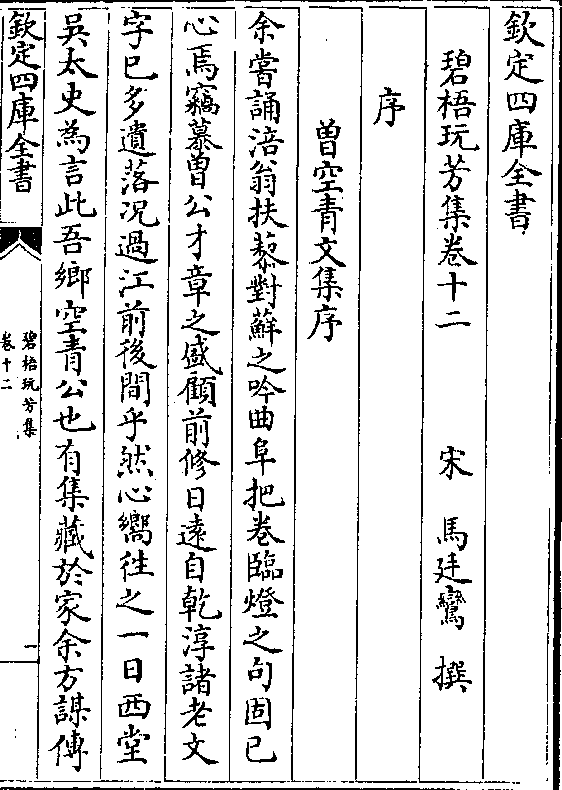 欽定四庫全書
碧梧玩芳集卷十二
宋 馬廷鸞 撰
序
曽空青文集序
余嘗誦涪翁扶藜對蘇之吟曲阜把卷臨燈之句固已
心焉竊慕曽公才章之盛顧前修日逺自乾淳諸老文
字已多遺落况過江前後間乎然心嚮往之一日西堂
吳太史為言此吾鄉空青公也有集藏於家余方謀傳
欽定四庫全書
碧梧玩芳集
卷十二
一